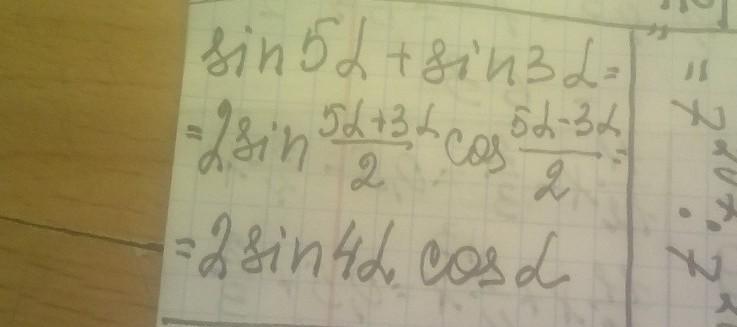 sin5α + sin3α =
= 2sin (5α+3α)/2 cos (5α-3α)/2 =
= 2sin4α cosα